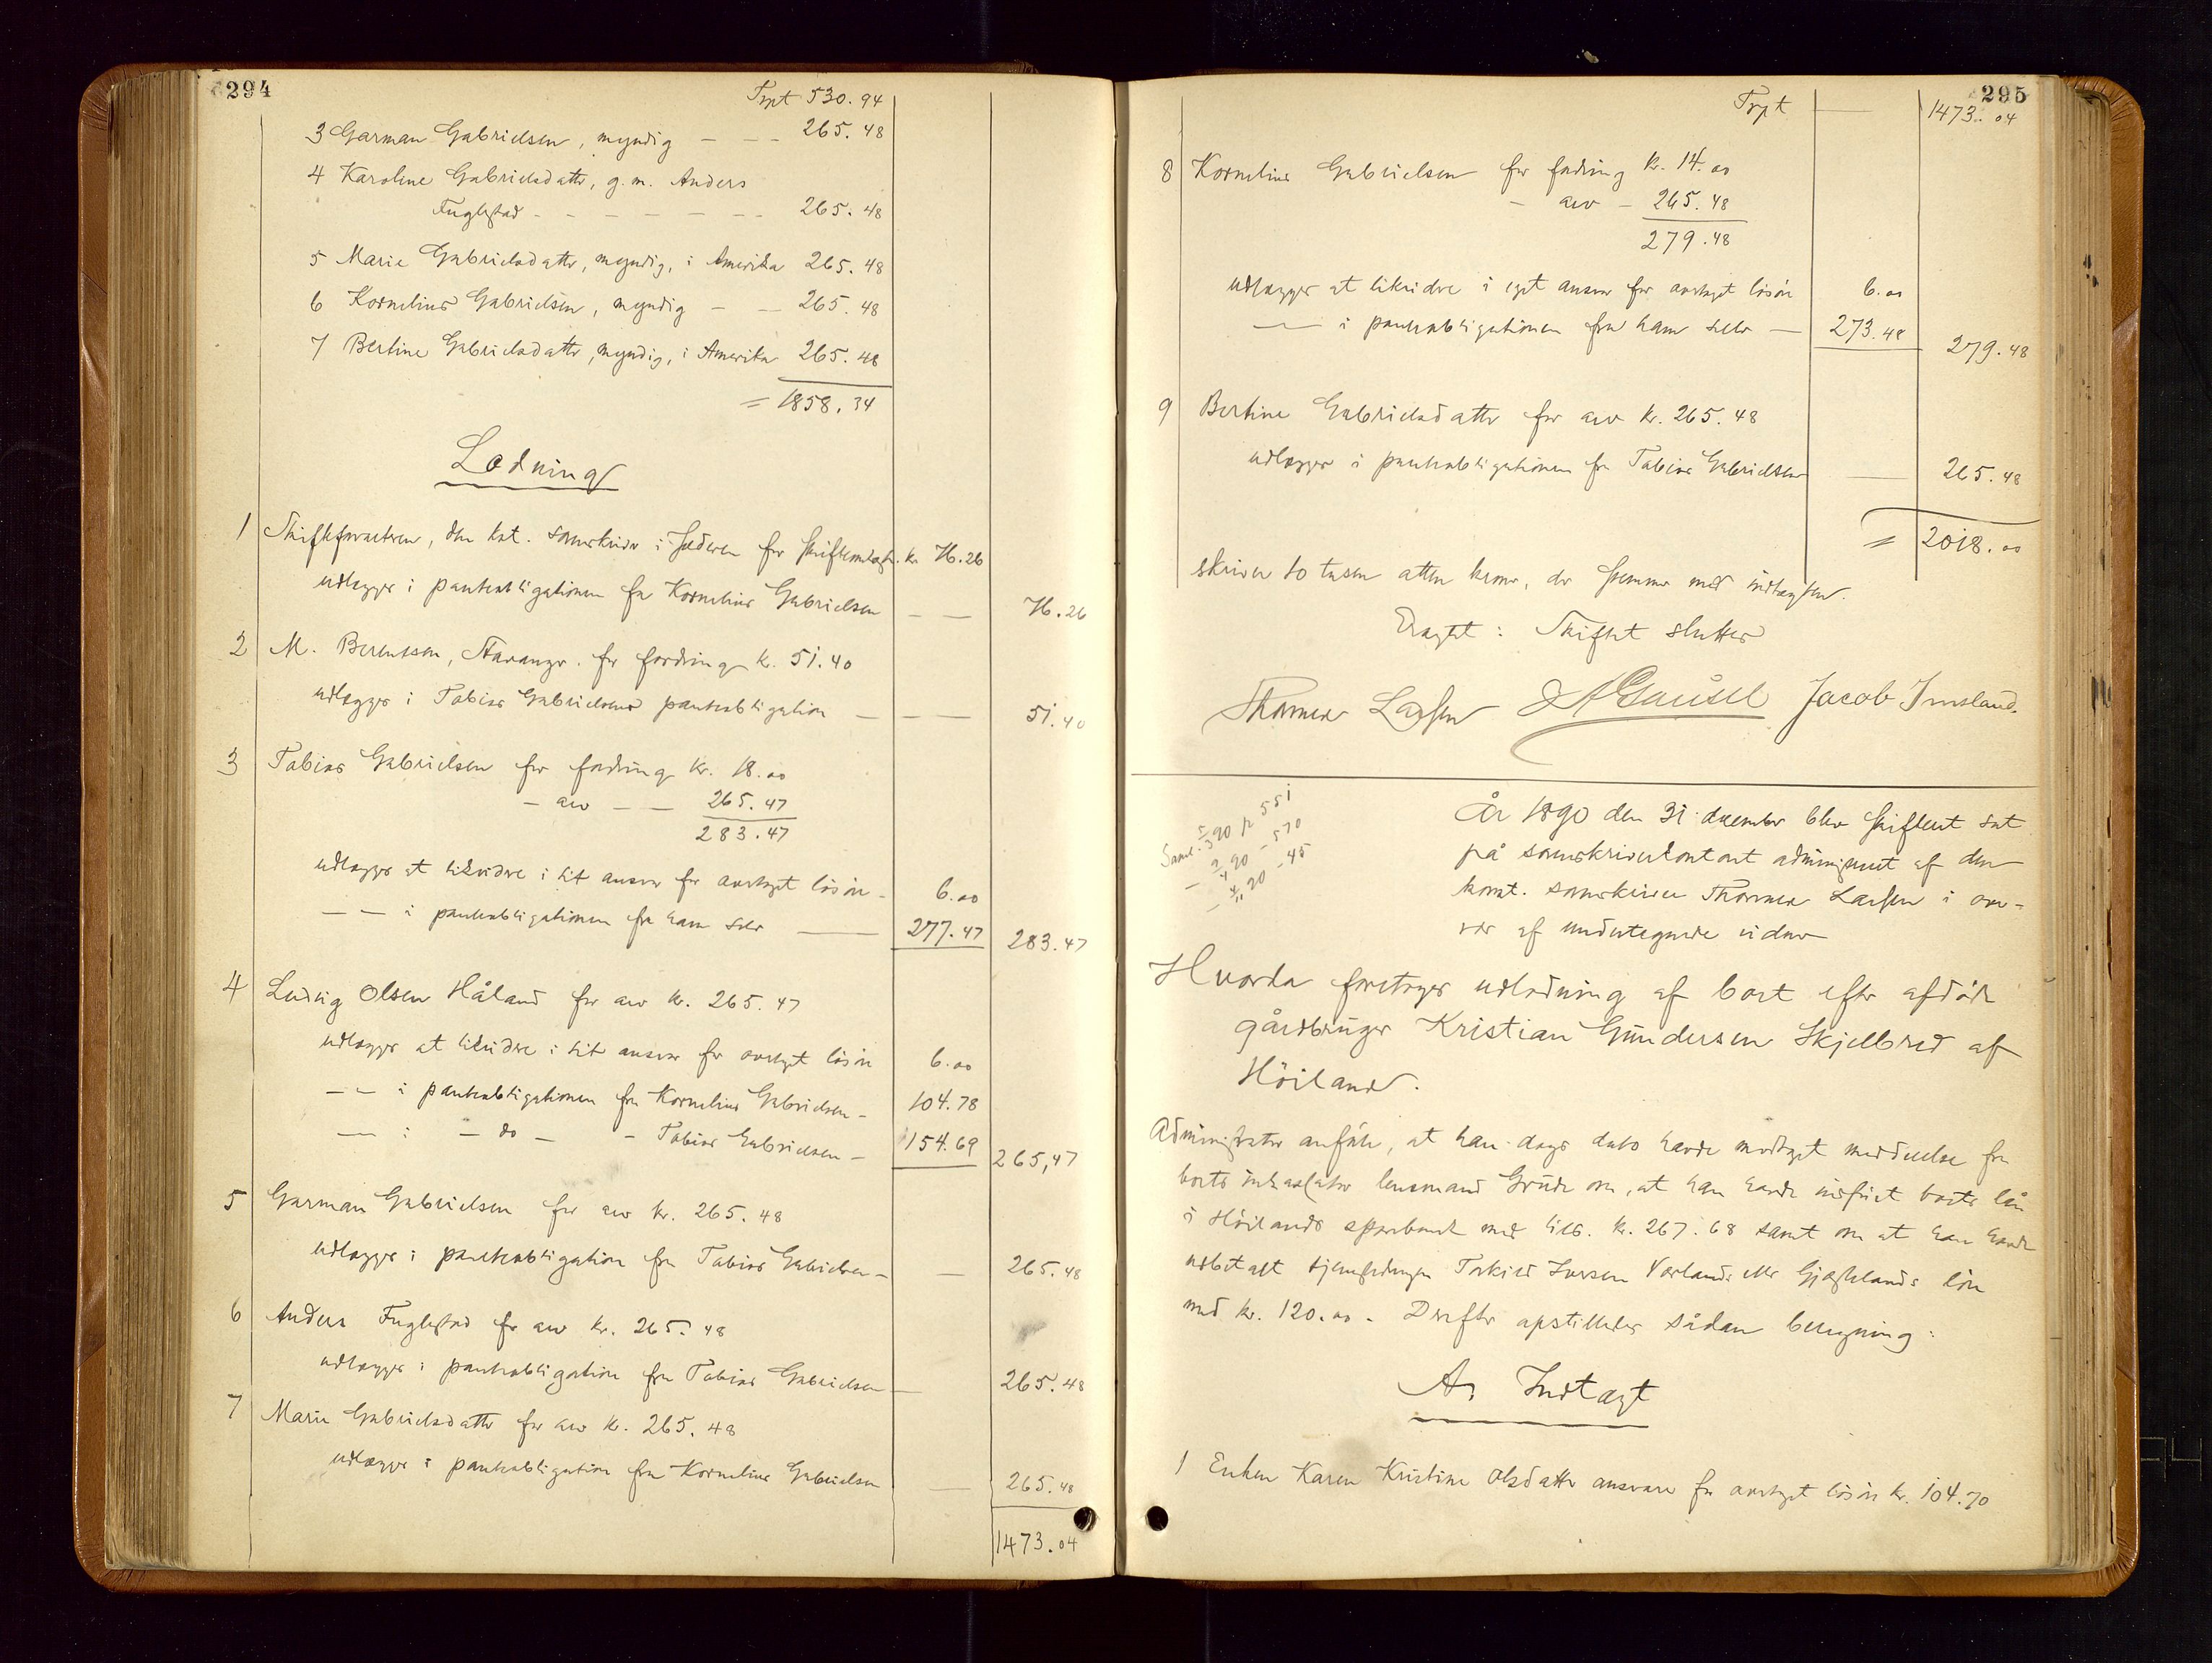 294
Trpt 530.94
3 Garman Gabrielsen, myndig - - - 265.48
4 Karoline Gabrielsdattr, g.m. Anders
Fuglestad - - - - - - 265.48
5 Marie Gabrielsdattr, myndig, i Amerika 265.48
6 Kornelius Gabrielsen, myndig - - 265.48
7 Bertine Gabrielsdattr, myndig, i Amerika 265.48
= 1858.34
Lodning
1 Skifteforvalteren, den kst. sorenskriver i Jæderen for skifteomkostn. kr. 76.26
udlægges i panteobligationen fra Kornelius Gabrielsen - - 76.26
2 M. Berentsen, Stavanger. for fordring kr. 51.40
udlægges i Tobias Gabrielsens panteobligation - - - 51.40
3 Tobias Gabrielsen for fordring kr. 18.00
- arv - - 265.47
283.47
udlægges at likvidere i sit ansvar for overtaget løsøre - 6.00
- - i panteobligationen fra ham selv - 277.47 283.47
4 Ludvig Olsen Håland for arv kr. 265.47
udlægges at likvidere i sit ansvar for overtaget løsøre 6.00
- - i panteobligationen fra Kornelius Gabrielsen - 104.78
- i - do - - Tobias Gabrielsen - 154.69 265,47
5 Garman Gabrielsen for arv kr. 265.48
udlægges i panteobligation fra Tobias Gabrielsen - - 265.48
6 Anders Fuglestad for arv kr. 265.48
udlægges i panteobligation fra Tobias Gabrielsen - 265.48
7 Marie Gabrielsdattr for arv kr. 265.48
udlægges i panteobligation fra Kornelius Gabrielsen - 265.48
1473.04
295
Trpt - 1473.04
8 Kornelius Gabrielsen for fordring kr. 14.00
- arv - 265.48
279.48
udlægges at likvidere i eget ansvar for overtaget løsøre 6.00
- i panteobligationen fra ham selv - 273.48 279.48
9 Bertine Gabrielsdattr for arv kr. 265.48
udlægges i panteobligationen fra Tobias Gabrielsen - 265.48
= 2018.00
skriver to tusen atten kroner, der stemmer med indtægten.
Eragtet: Skiftet sluttes
Thormen Larsen A Gausel Jacob Imsland.
Saml. 5/3 90 p 551
- 2/4 90 - 570
- 4/11 20 - 45
År 1890 den 31 december blev skifteret sat
på sorenskriverkontoret administreret af den
konst. sorenskriver Thormen Larsen i over-
vær af undertegnede vidner
Hvorda foretoges udlodning af boet efter afdøde
gårdbruger Kristian Gundersen Skjelbred af
Höiland.
Administrator anførte, at han dags dato havde modtaget meddelelse fra
boets inkassator lensmand Grude om, at han havde indfriet boets lån
i Höilands sparebank med tils. kr. 267.68 samt om at han havde
udbetalt Torkild Iversen Varland eller Gjæsteland s løn
med kr. 120.00. Derefter opstilledes sådan beregning:
A. Indtægt
1 Enken Karen Kristine Olsdattr ansvarer for overtaget løsøre kr. 104.70